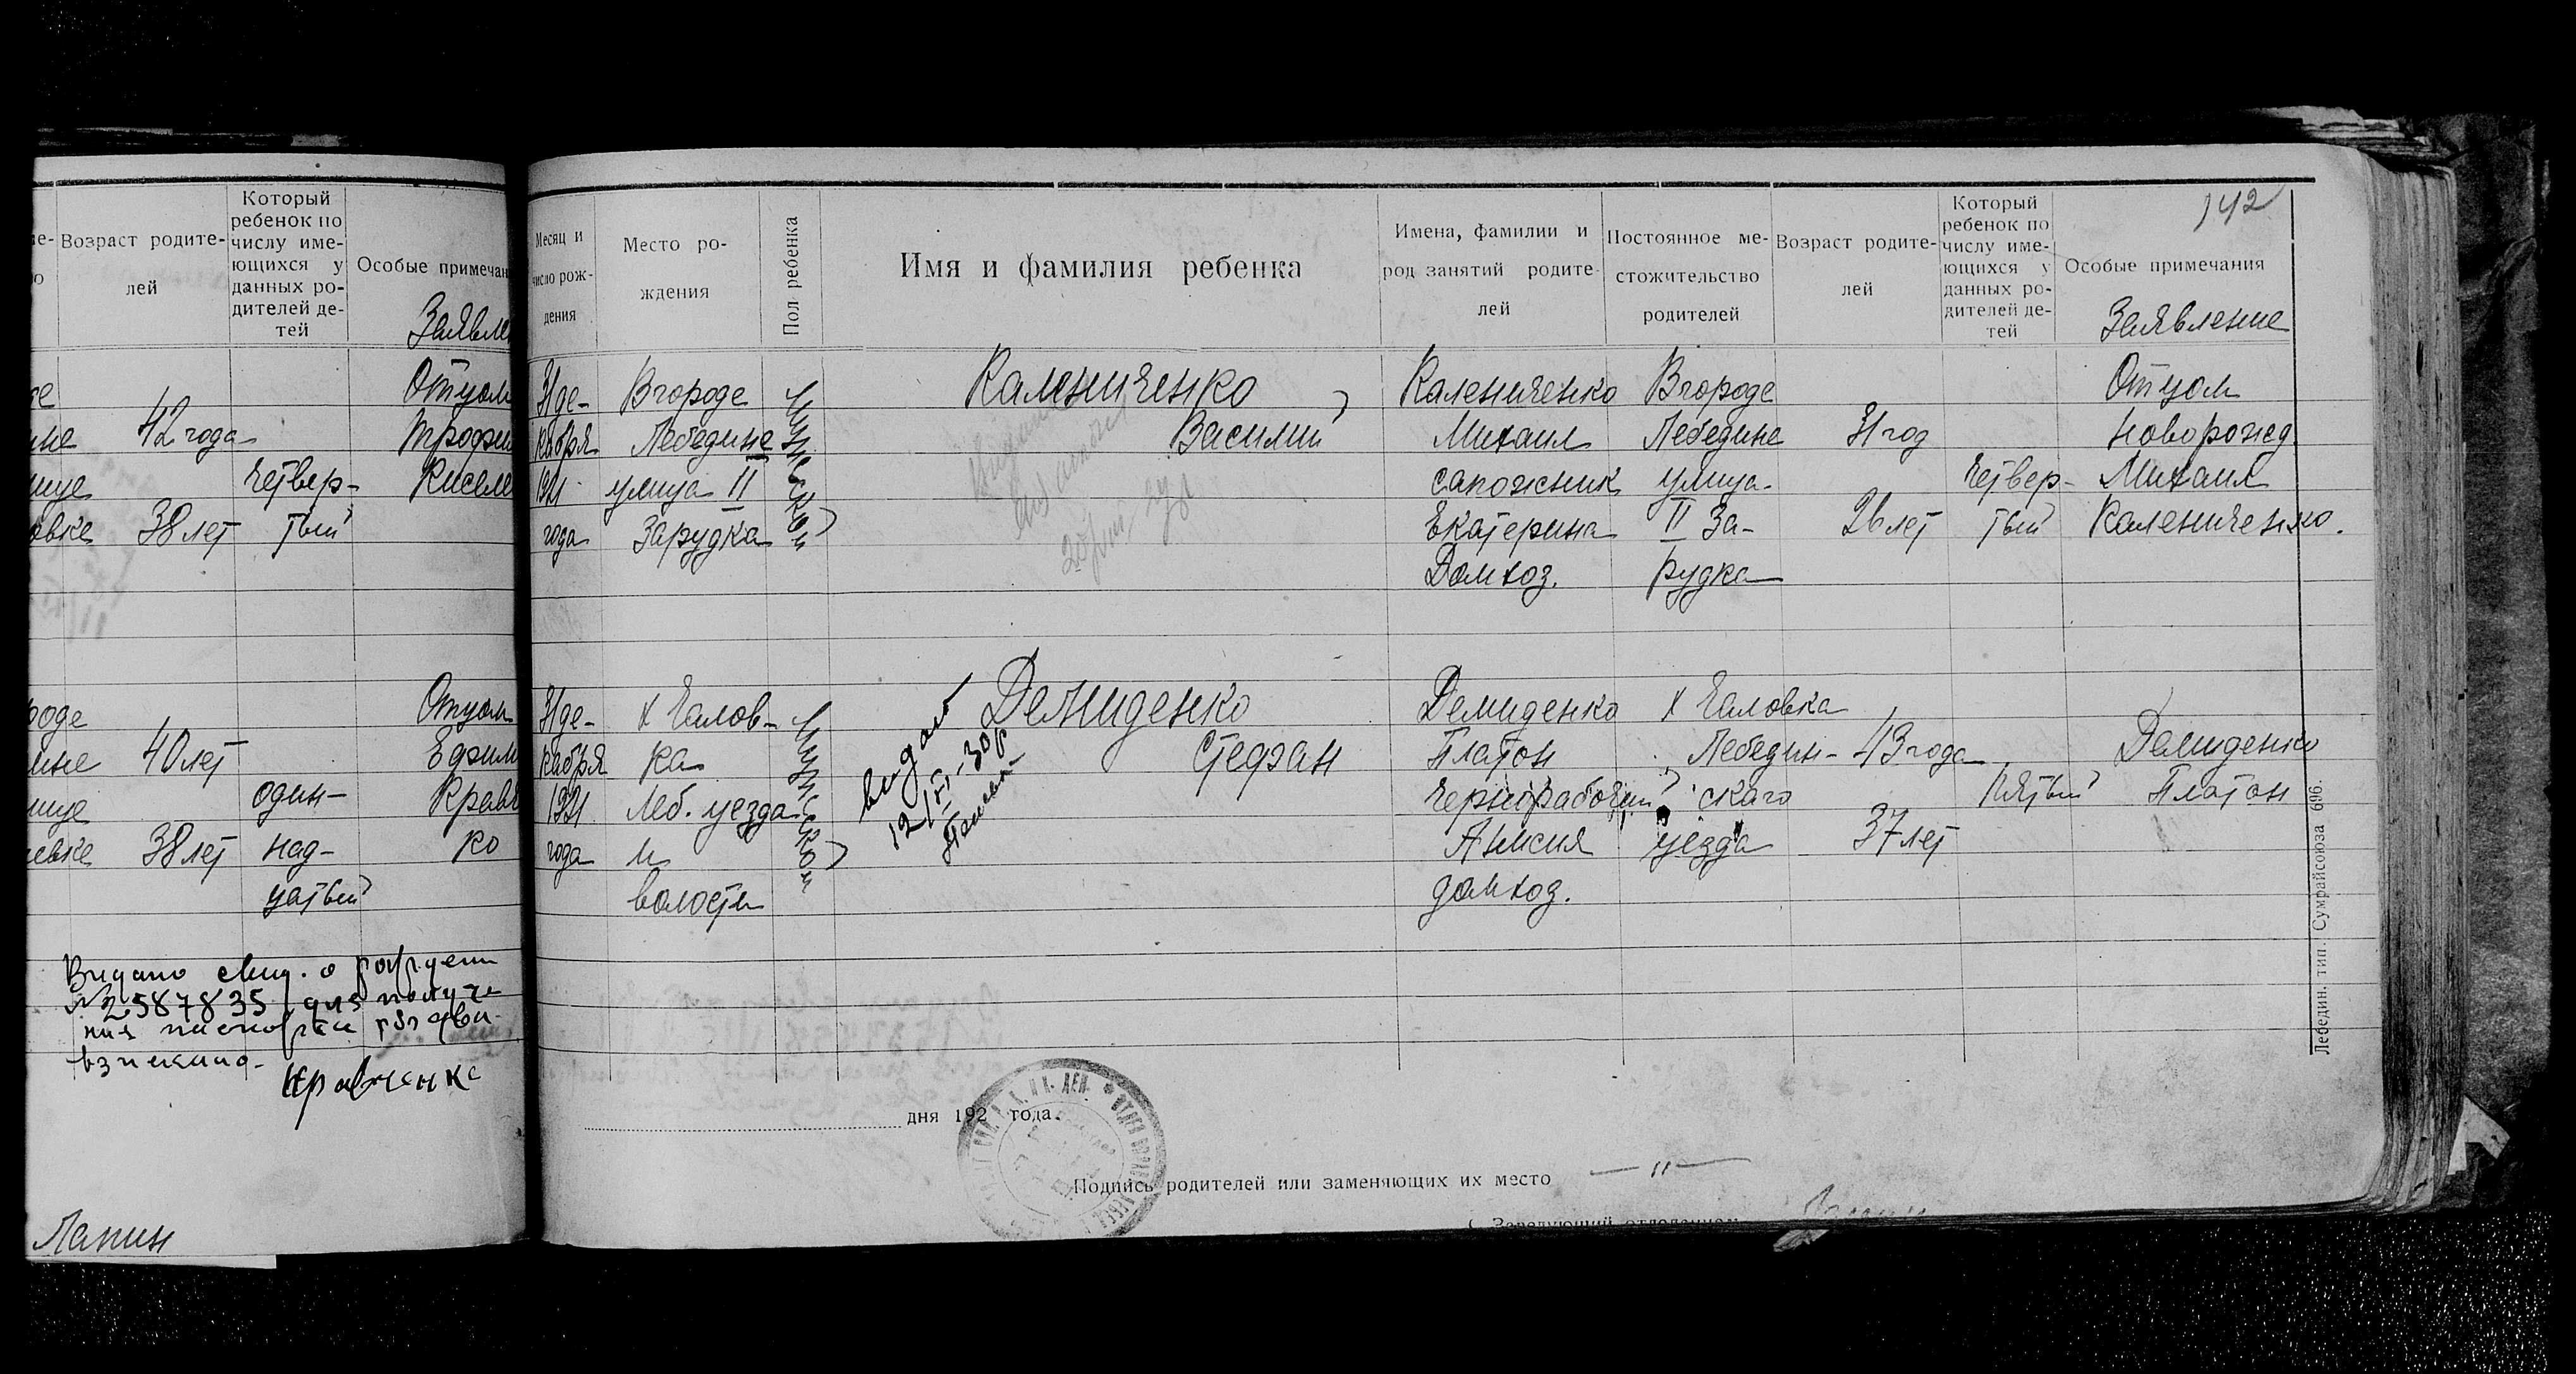 Возраст родите-
лей
Который
ребенок по
числу име-
ющихся у
данных ро-
дителей де-
тей
Особые примечан
Заявле
42 года
38 лет
Четвер-
тый
Отцом
Трофим
Киселе
40 лет
38 лет
один-
над-
цатый
Отцом
Ефим
Кравч
ко
Видано свид. о рожден
№ 2587835 для получе
ния паспорта
Кравченко
Лапин
142
Месяц и
число рож-
дения
Место ро-
ждения
Пол ребенка
Имя и фамилия ребенка
Имена, фамилии и
род занятий родите-
лей
Постоянное ме-
стожительство
родителей
Возраст родите-
лей
Который
ребенок по
числу име-
ющихся у
данных ро-
дителей де-
тей
Особые примечания
Заявление
31 де-
кабря
1921
года
В городе
Лебедине
улица II
Зарудка
Мужской
Калениченко
Василий
Калениченко
Михаил
сапожник
Екатерина
Домхоз.
В городе
Лебедине
улица
II За-
рудка
31 год
26 лет
Четвер-
тый
Отцом
новорожд.
Михаил
Калениченко.
31 де-
кабря
1921
года
х Галов-
ка
Леб. уезда
и
волости
Мужской
видано
12/VI-30 р
Демиденко
Стефан
Демиденко
Платон
Чернорабочий
Анисия
домхоз.
х Галовка
Лебедин-
скаго
уезда
43 года
37 лет
Пятый
Демиденко
Платон
дня 192 года.
Подпись родителей или заменяющих их место — " —
Лебедин. тип. Сумрайсоюза 696.